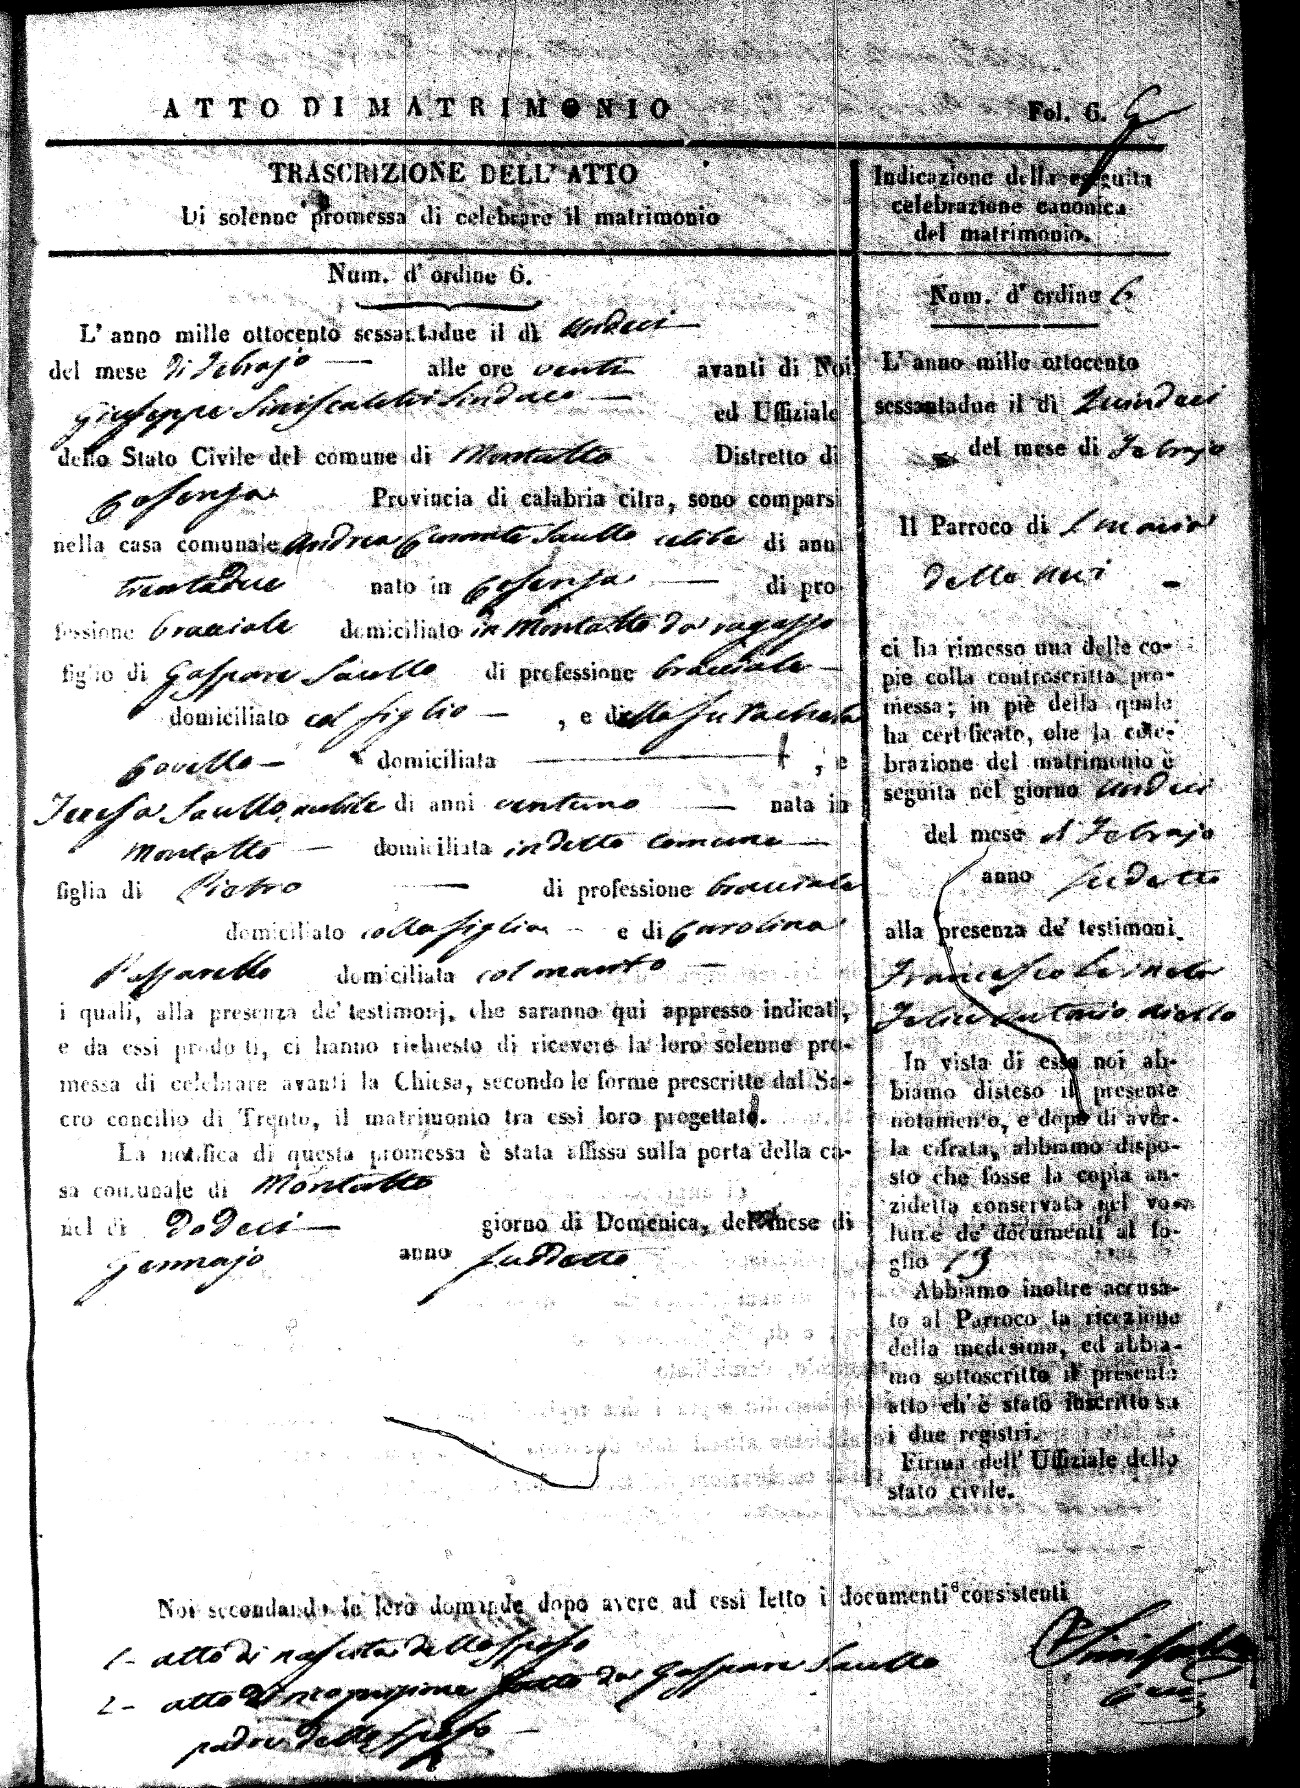 ATTO DI MATRIMONIO
Fol. 6.
TRASCRIZIONE DELL' ATTO
Di solenne promessa di celebrare il matrimonio
Num. d' ordine 6.
L' anno mille ottocento sessantadue il dì undeci
del mese di Febrajo alle ore venti avanti di Noi
Giuseppe Siniscalchi Sindaco ed Uffiziale
dello Stato Civile del comune di Montalto Distretto di
Cosenza Provincia di calabria citra, sono comparsi
nella casa comunale Andrea Saullo celibe di anni
trentadue nato in Cosenza di pro-
fessione bracciale domiciliato in Montalto da ragazzo
figlio di Gaspare Saullo di professione bracciale
domiciliato col figlio , e di della fu Rachela
Covello domiciliata , e
Teresa Saullo nubile di anni ventuno nata in
Montalto domiciliata in detto comune
figlia di Pietro di professione bracciale
domiciliato colla figlia e di Carolina
Passarello domiciliata col marito
i quali, alla presenza de' testimonj, che saranno qui appresso indicati,
e da essi prodotti, ci hanno richiesto di ricevere la loro solenne pro-
messa di celebrare avanti la Chiesa, secondo le forme prescritte dal Sa-
cro concilio di Trento, il matrimonio tra essi loro progettato.
La notifica di questa promessa è stata affissa sulla porta della ca-
sa comunale di Montalto
nel dì dodeci giorno di Domenica, del mese di
Gennajo anno suddetto
Indicazione della eseguita
celebrazione canonica
del matrimonio.
Num. d' ordine 6
L' anno mille ottocento
sessantadue il dì Quindeci
del mese di Febrajo
Il Parroco di S Maria
della
ci ha rimesso una delle co-
pie colla controscritta pro-
messa; in piè della quale
ha certificato, che la cele-
brazione del matrimonio è
seguita nel giorno undeci
del mese di Febrajo
anno suddetto
alla presenza de' testimoni
Francesco
Felice Antonio Aiello
In vista di essa noi ab-
biamo disteso il presente
notamento, e dopo di aver-
la cifrata, abbiamo dispo-
sto che fosse la copia an-
zidetta conservata nel vo-
lume de' documenti al fo-
glio 13
Abbiamo inoltre accusa-
to al Parroco la ricezione
della medesima, ed abbia-
mo sottoscritto il presente
atto ch' è stato inscritto su
i due registri.
Firma dell' Uffiziale dello
stato civile.
Noi secondando le loro domande dopo avere ad essi letto i documenti consistenti
1- atto di nascita dello sposo
2- atto di ricognizione fatto da Gaspare Saullo
padre dello sposo